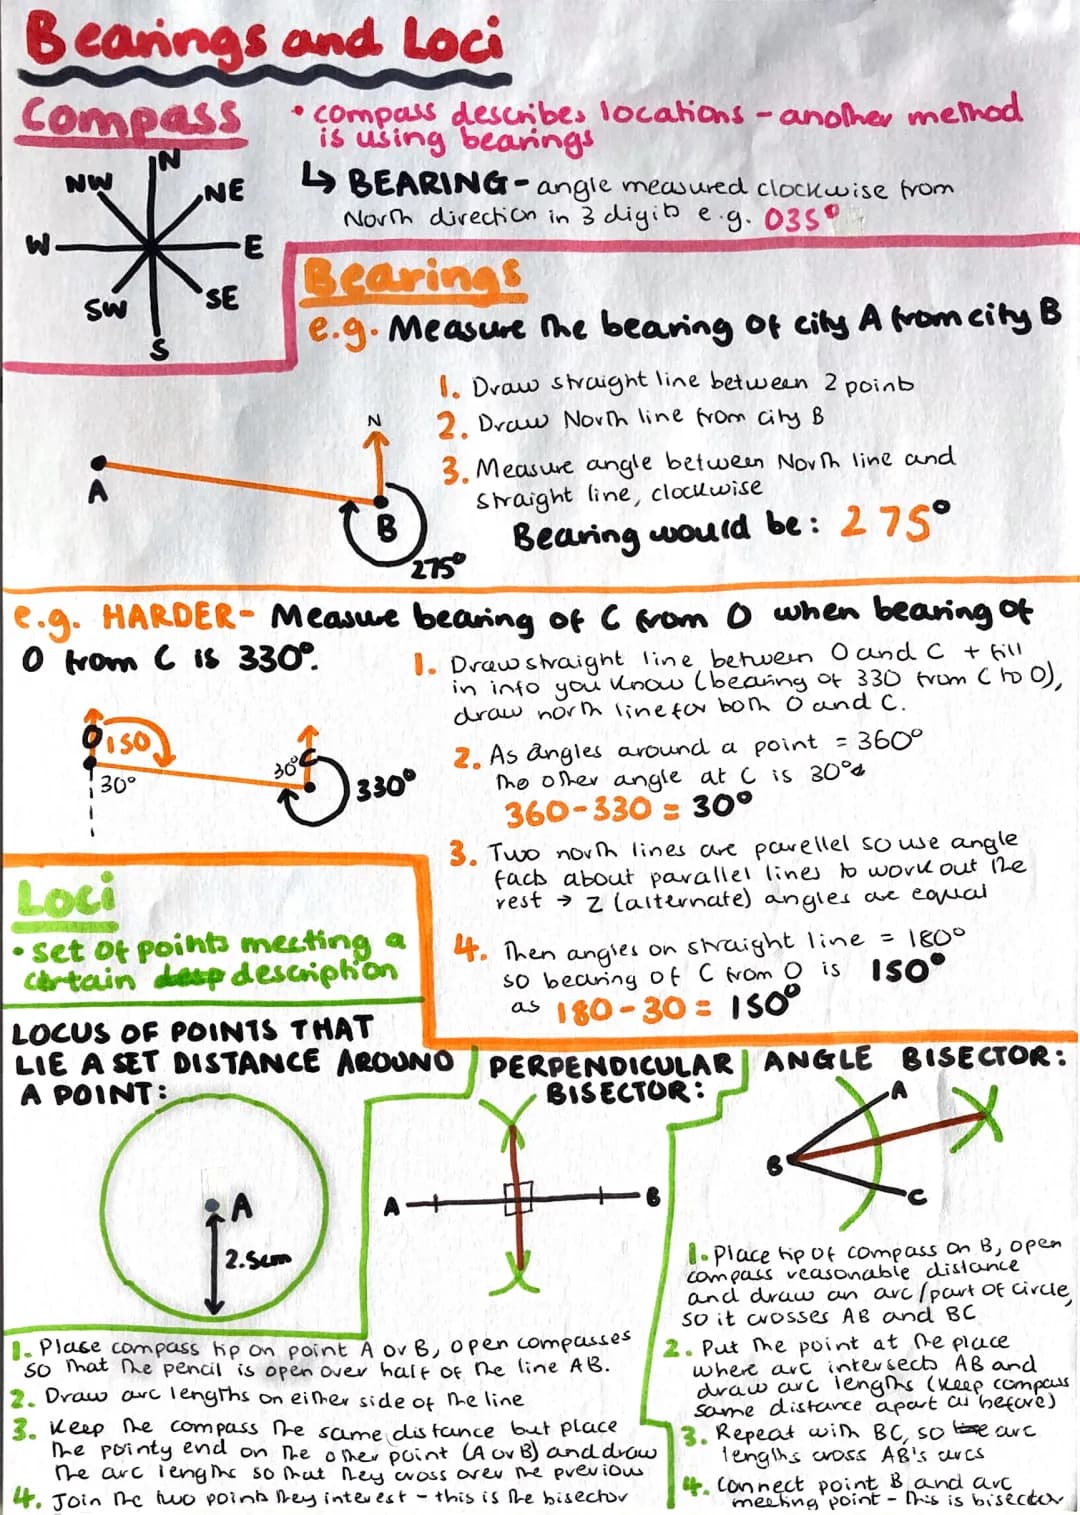 Bearings and Loci
Compass
• compass describes locations - another method
is using bearings
↳ BEARING - angle measured clockwise from
North direction in 3 digits e.g. 035°
N
NW
NE
W
E
SW
SE
S
Bearings
e.g. Measure the bearing of city A from city B
1. Draw straight line between 2 points
2. Draw North line from city B
3. Measure angle between North line and
straight line, clockwise
Bearing would be: 275°
N
A
B
275°
e.g. HARDER - Measure bearing of C from D when bearing of
D from C is 330°.
1. Draw straight line between D and C + fill
in info you know (bearing of 330 from C to D),
draw north line for both D and C.
2. As angles around a point = 360°
the other angle at C is 30°
360-330 = 30°
3. Two north lines are parellel so use angle
facts about parallel lines to work out the
rest → Z (alternate) angles are equal
4. Then angles on straight line = 180°
so bearing of C from D is 150°
as 180-30 = 150°
D
150
30°
30°
C
330°
Loci
• set of points meeting a
certain description
LOCUS OF POINTS THAT
LIE A SET DISTANCE AROUND
A POINT:
A
2.5cm
PERPENDICULAR
BISECTOR:
A
B
1. Place compass tip on point A or B, open compasses
so that the pencil is open over half of the line AB.
2. Draw arc lengths on either side of the line
3. Keep the compass the same distance but place
the pointy end on the other point (A or B) and draw
the arc lengths so that they cross over the previous
4. Join the two points they interest - this is the bisector
ANGLE BISECTOR:
A
B
C
1. Place tip of compass on B, open
compass reasonable distance
and draw an arc/part of circle,
so it crosses AB and BC
2. Put the point at the place
where arc intersects AB and
draw arc lengths (keep compass
same distance apart as before)
3. Repeat with BC, so arc
lengths cross AB's arcs
4. Connect point B and arc
meeting point - this is bisector